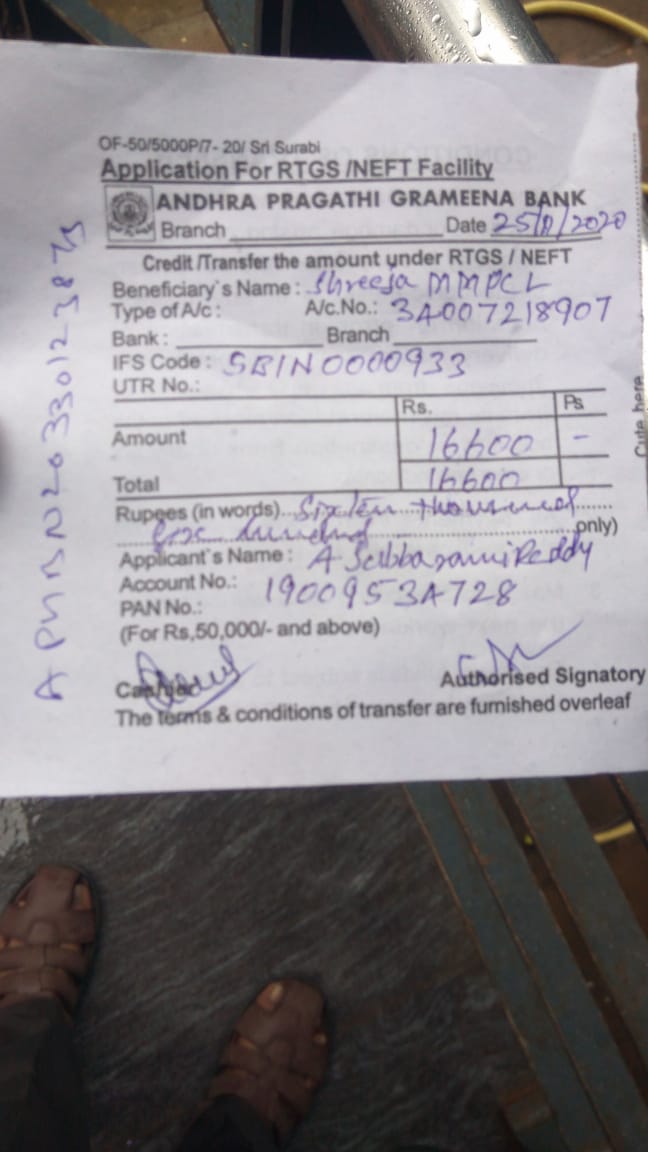 OF-50/5000P/7- 20/ Sri Surabi
Application For RTGS /NEFT Facility
ANDHRA PRAGATHI GRAMEENA BANK
Branch Date 25/8/2020
Credit /Transfer the amount under RTGS / NEFT
Beneficiary`s Name : Shreeja MMPCL
Type of A/c : A/c.No.: 34007218907
Bank : Branch
IFS Code : SBIN0000933
UTR No.:
Rs. Ps
Amount 16600 -
Total 16600
Rupees (in words) Sixten thousend
Six hundred only)
Applicant`s Name : A Subbarami Reddy
Account No.: 19009534728
PAN No.:
(For Rs,50,000/- and above)
Cashier Authorised Signatory
The terms & conditions of transfer are furnished overleaf
Cute here